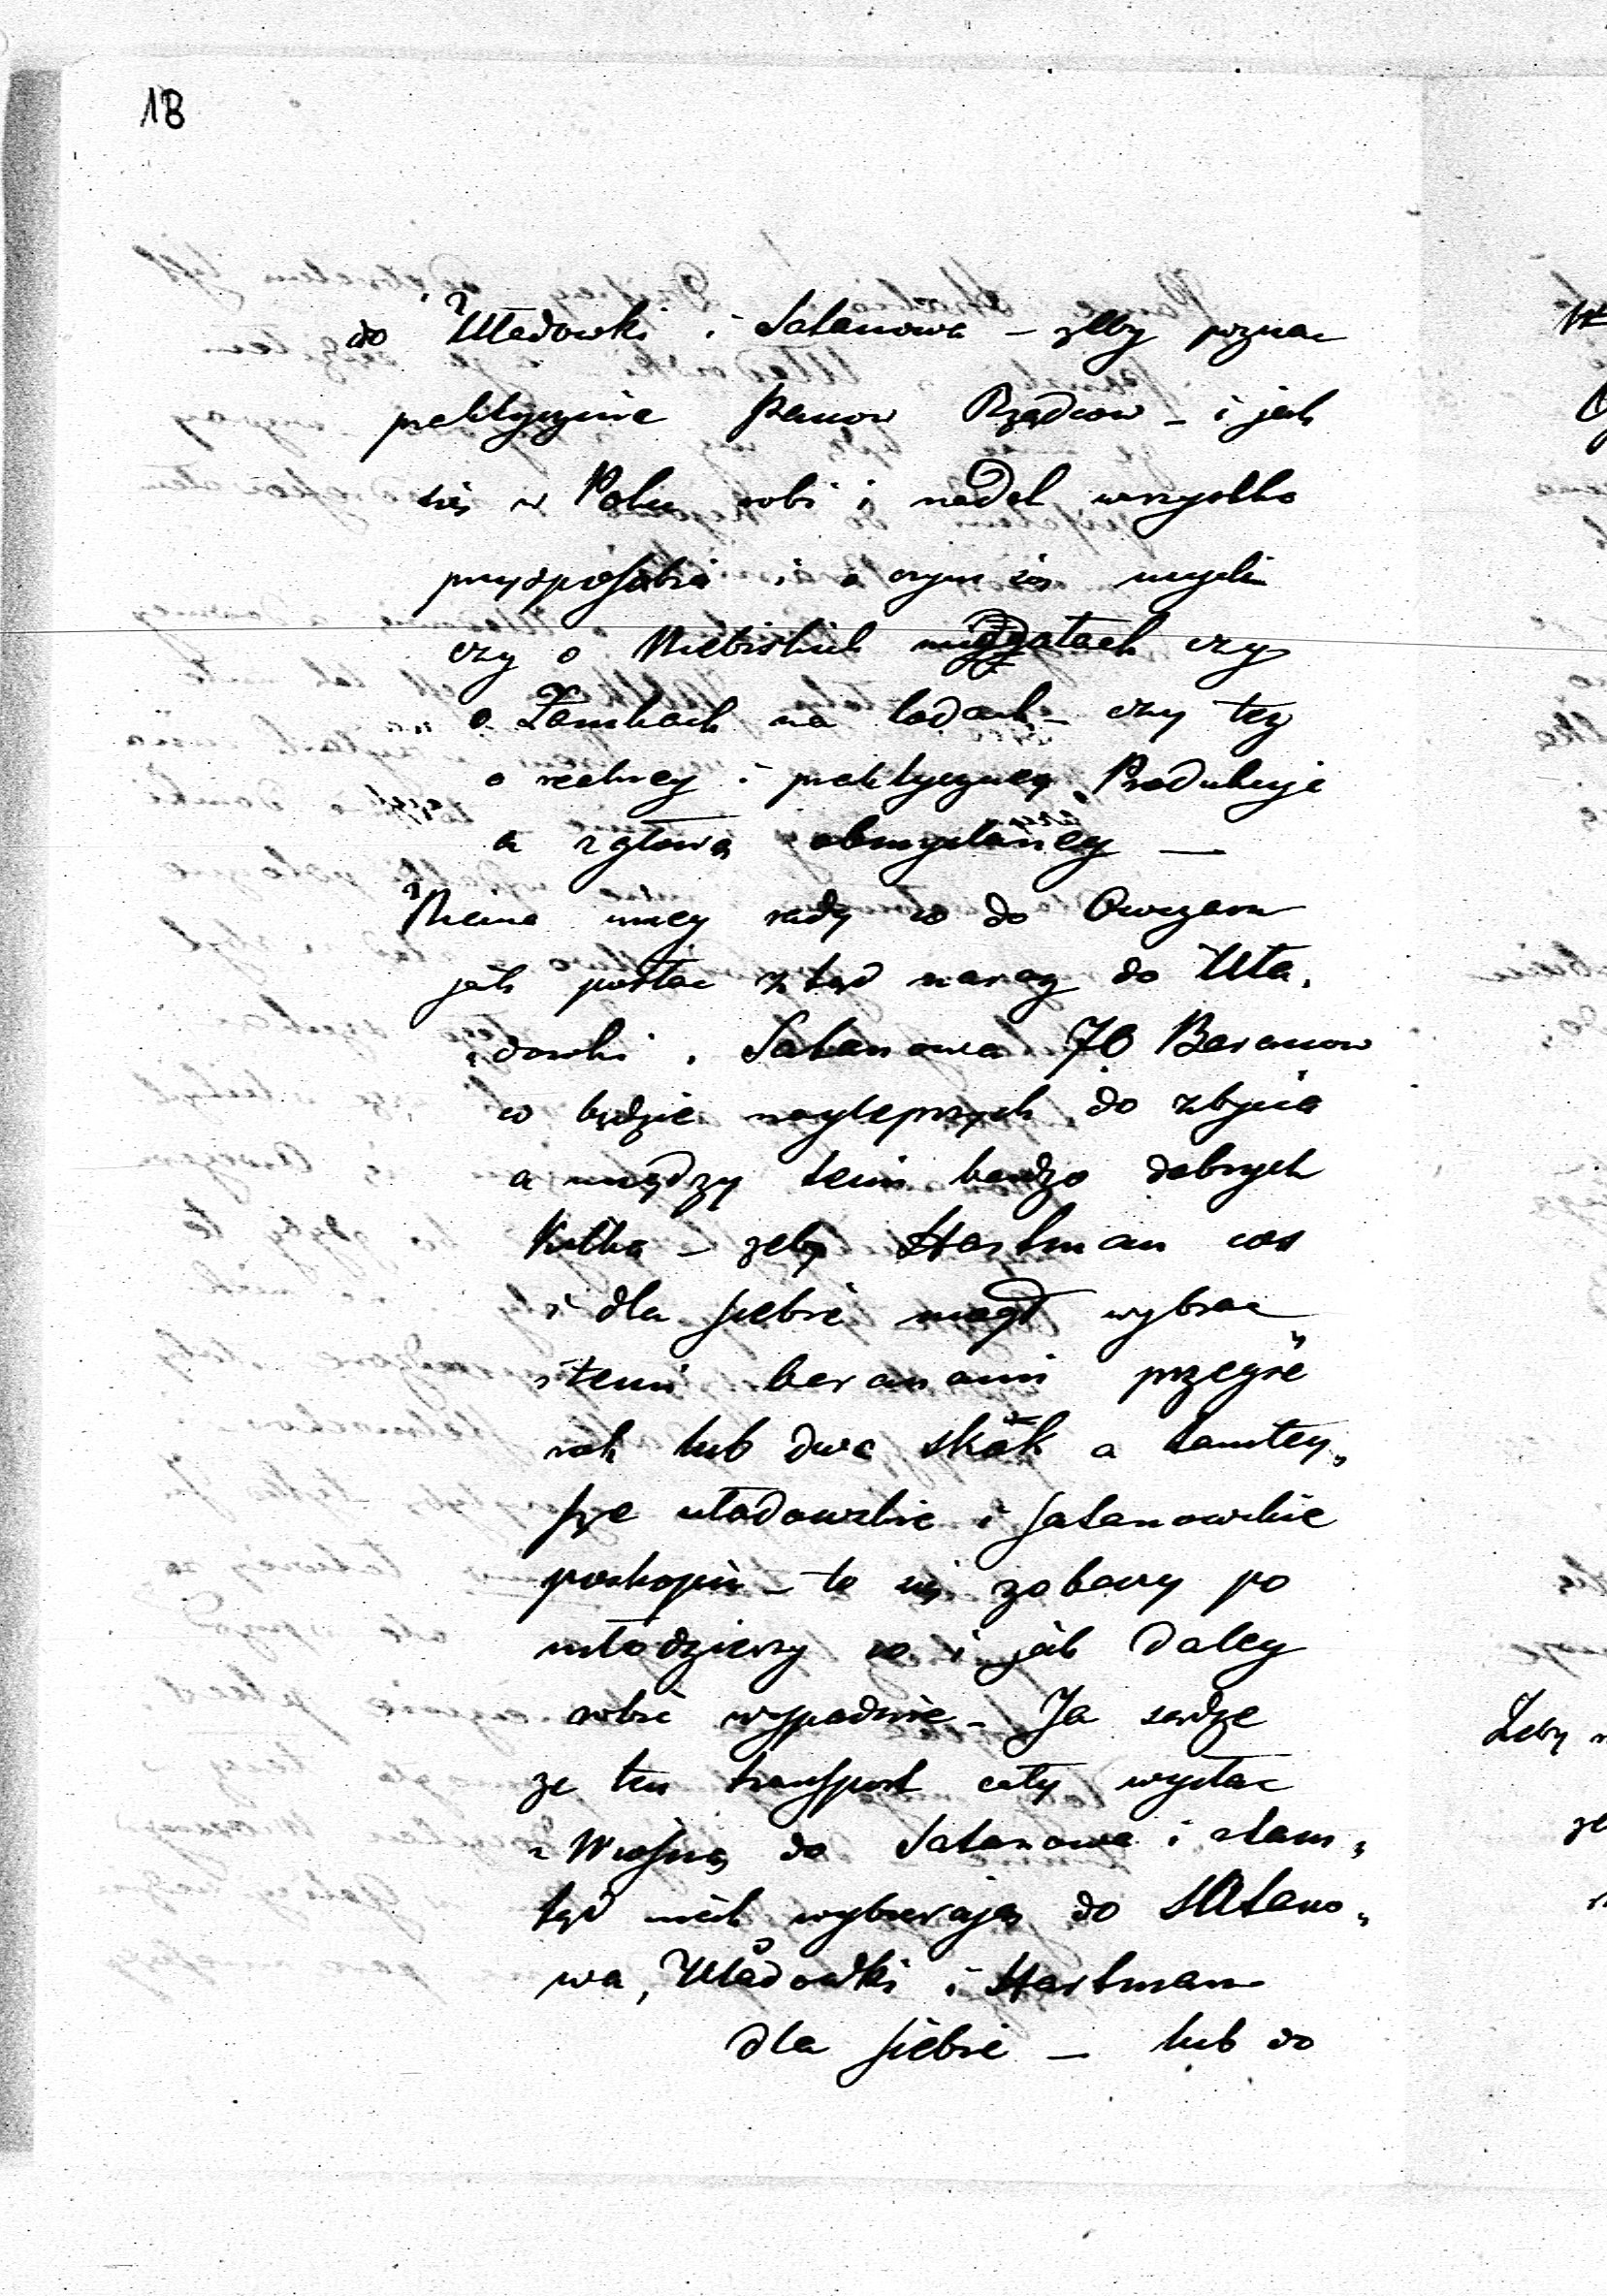 18
do Uładowki i Satanowa – zeby poznac
praktycznie Panow Rządcow – i jak
się w Polu robi i nadal wszystko
przysposabia i o czym się mysli
czy o Niebiskich migdałach czy
o Zamkach na lodach – czy tez
o realney i praktyczney Produkcyi
a z głową obmyslaney —
Niema inney rady co do Owczarn
jak posłac ztąd naraz do Uła„
„dowki i Satanowa 70 Baranow
co będzie naylepszych do zbycia
a między temi bardzo dobrych
Kilka – zeby Hartman cos
i dla siebie mogł wybrac
i temi baranami przeyse„
rok lub dwa skok a tamtey„
sze uładowskie i satanowskie
poskopic – to się zobaczy po
młodziezy co i jak daley
robic wypadnie – Ja sądze
ze ten transport cały wysłac
z Wiosną do Satanowa i stam„
tąd niech wybierają do Satano„
wa, Uładowki i Hartman
dla siebie — lub do
Zeby